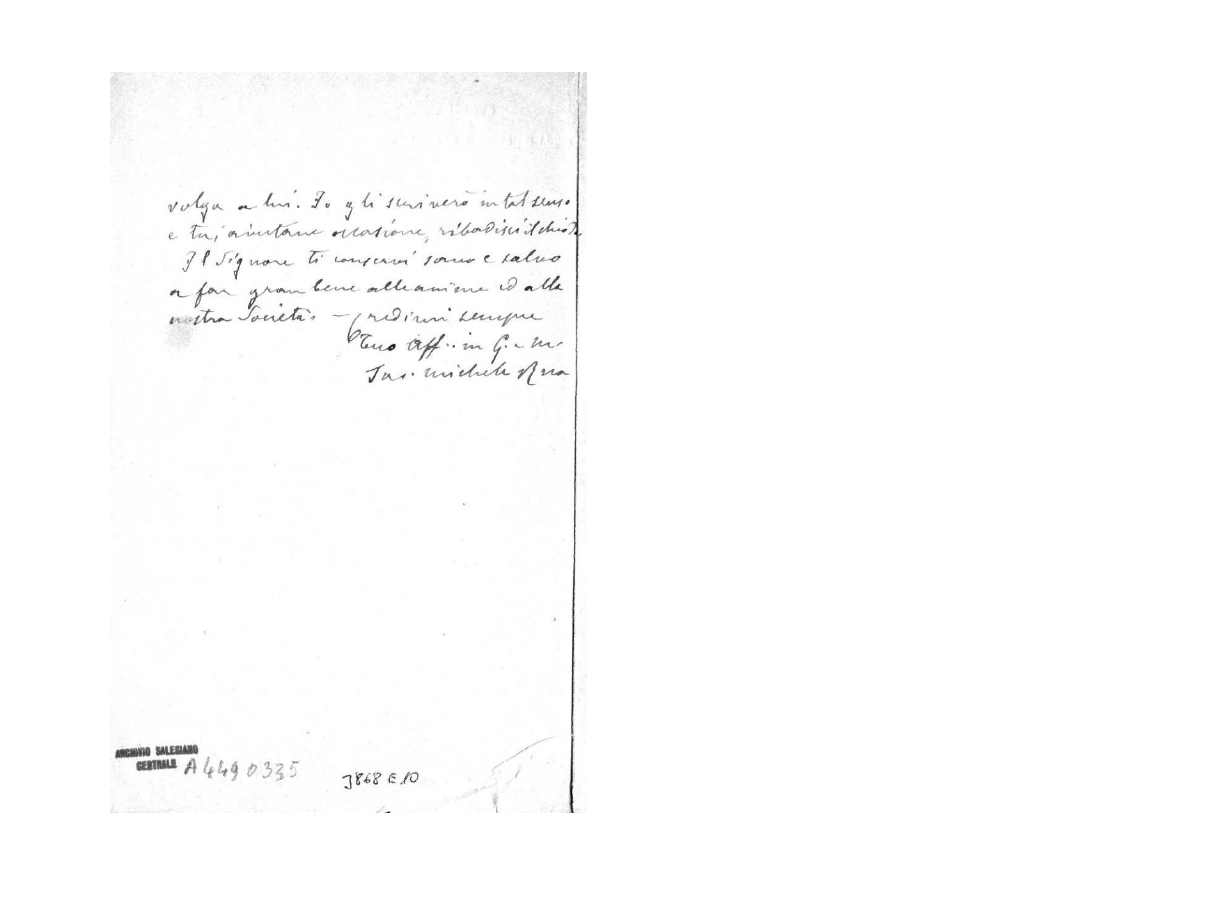 volga a lui. Io gli scriverò in tal senso
e tu, aiutane occasione, ribadisci il chiodo
Il Signore ti conservi sano e salvo
a far gran bene alle anime ed alla
nostra Società. - Credimi sempre
Tuo aff.. in G. e M.
Sac. Michele Rua
ARCHIVIO SALESIANO
CENTRALE
A4490335
3868 E 10